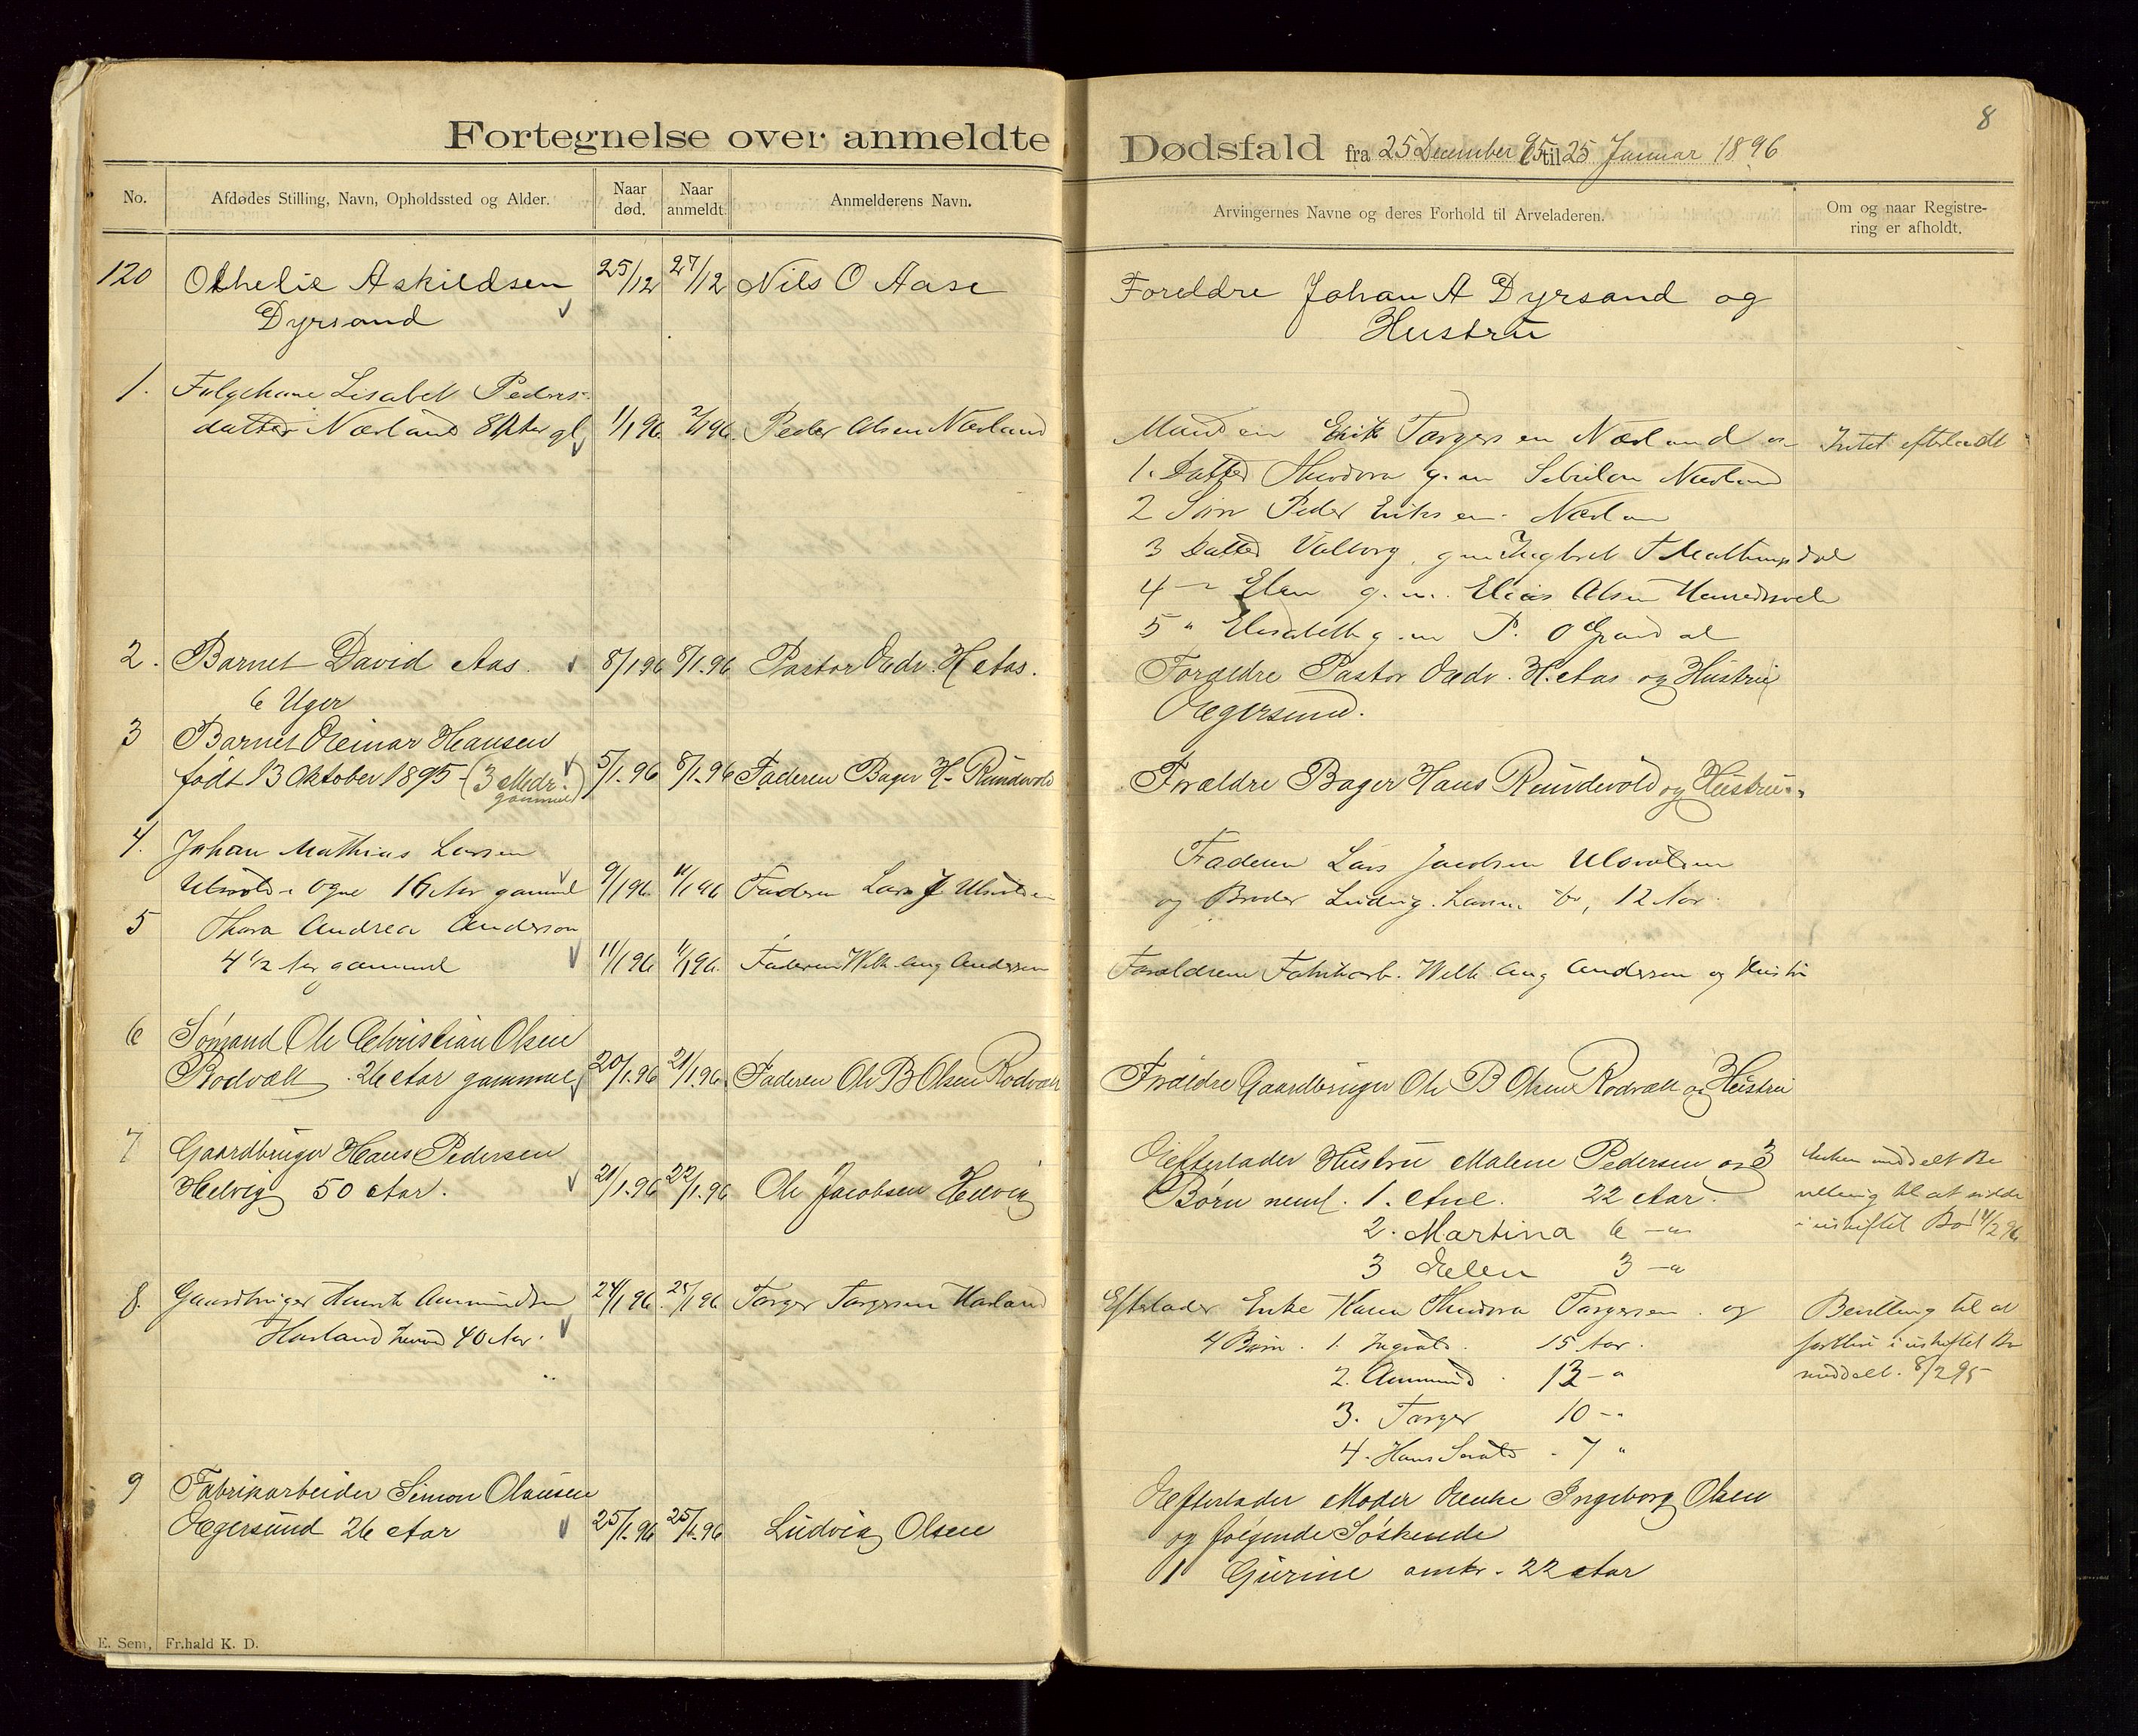 8
Fortegnelse over anmeldte Dødsfald fra 25 December 95 til 25 Januar 1896
No.
Afdødes Stilling, Navn, Opholdssted og Alder.
Naar død.
Naar anmeldt.
Anmelderens Navn.
Arvingernes Navne og deres Forhold til Arveladeren.
Om og naar Registrering er afholdt.
120 Othelie Askildsen 25/12 27/12 Nils O Aase
Dyrsand
Foreldre Johan A Dyrsand og
Hustru
1. Lisabet Peders-
datter Nærland gl 1/1 96. 2/1 96. Peder Olsen Nærland
Manden Erik Torgersen Nærland Intet efterladt
1. Datter Theodora g. m. Nærland
2 Søn Peder Eriksen
3 Datter Valborg
4 Elen g. m. Elias Olsen
5 " Elisabeth g. m P. O
2. Barnet David Aas. 8/1 96 8/1.96 Pastor Edv. H Aas.
6 Uger
Forældre Pastor Edv. H. Aas og Hustru
Egersund.
3 Barnet Einar Hansen
født 13 Oktober 1895 (3 Mdr. gammel) 5/1.96 8/1.96 Faderen Bager H. Rundevold
Forældre Bager Hans Rundevold og Hustru
4. Johan Mathias Larsen
Ogne 16 Aar gammel 9/1 96. 11/1 96 Faderen Lars J
Faderen Lars Jacobsen
og Broder Ludvig Larsen do, 12 Aar.
5 Thora Andrea Anderson
4 1/2 Aar gammel 11/1 96 11/1 96. Faderen Wilh. Aug Andersen
Forældrene Fabrikarb. Wilh Aug Andersen og Hustru
6 Sømand Ole Christian Olsen
Rodvelt. 26 Aar gammel 20/1.96 21/1.96. Faderen Ole B Olsen Rodvelt
Forældre Gaardbruger Ole B Olsen Rodvelt og Hustru
7 Gaardbruger Hans Pedersen
Helvig 50 Aar. 21/1.96 22/1.96 Ole Jacobsen Helvig
Efterlader Hustru Malene Pedersen og 3
Børn neml. 1. Ane. 22 Aar.
2. Martina 6 — "
3 Elen 3 — "
Enken meddelt Be
villing til at sidde
i uskiftet Bo 14/2 96
8. Gaardbruger Henrik Aanmundsen 24/1 96. 25/1 96 Torger Torgersen Havland
Havland 40 Aar.
Efterlader Enke Theodora Torgersen. og
4 Børn. 1. Ingvald. 15 Aar.
2. Aanmund. 13 — "
3. Torger 10 — "
4. Hans 7 "
Bevilling til at
i uskiftet Bo
meddelt. 8/2 95
9 Fabrikarbeider Simon Olausen
Egersund 26 Aar 25/1.96 25/1.96 Ludvig Olsen
Efterlader Moder Enke Ingeborg Olsen
og følgende Søskende
1 Gurine omtr. 22 Aar
E. Sem, Fr.hald K. D.